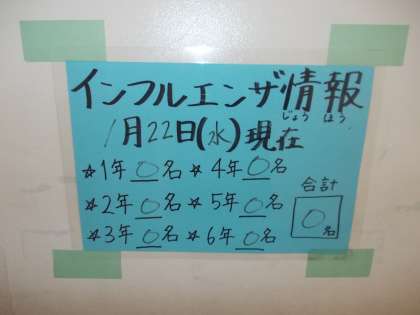 インフルエンザ情報
じょう ほう
1月22日(水)現在
☆1年 0名 ☆4年 0名
☆2年 0名 ☆5年 0名
☆3年 0名 ☆6年 0名
合計
0名